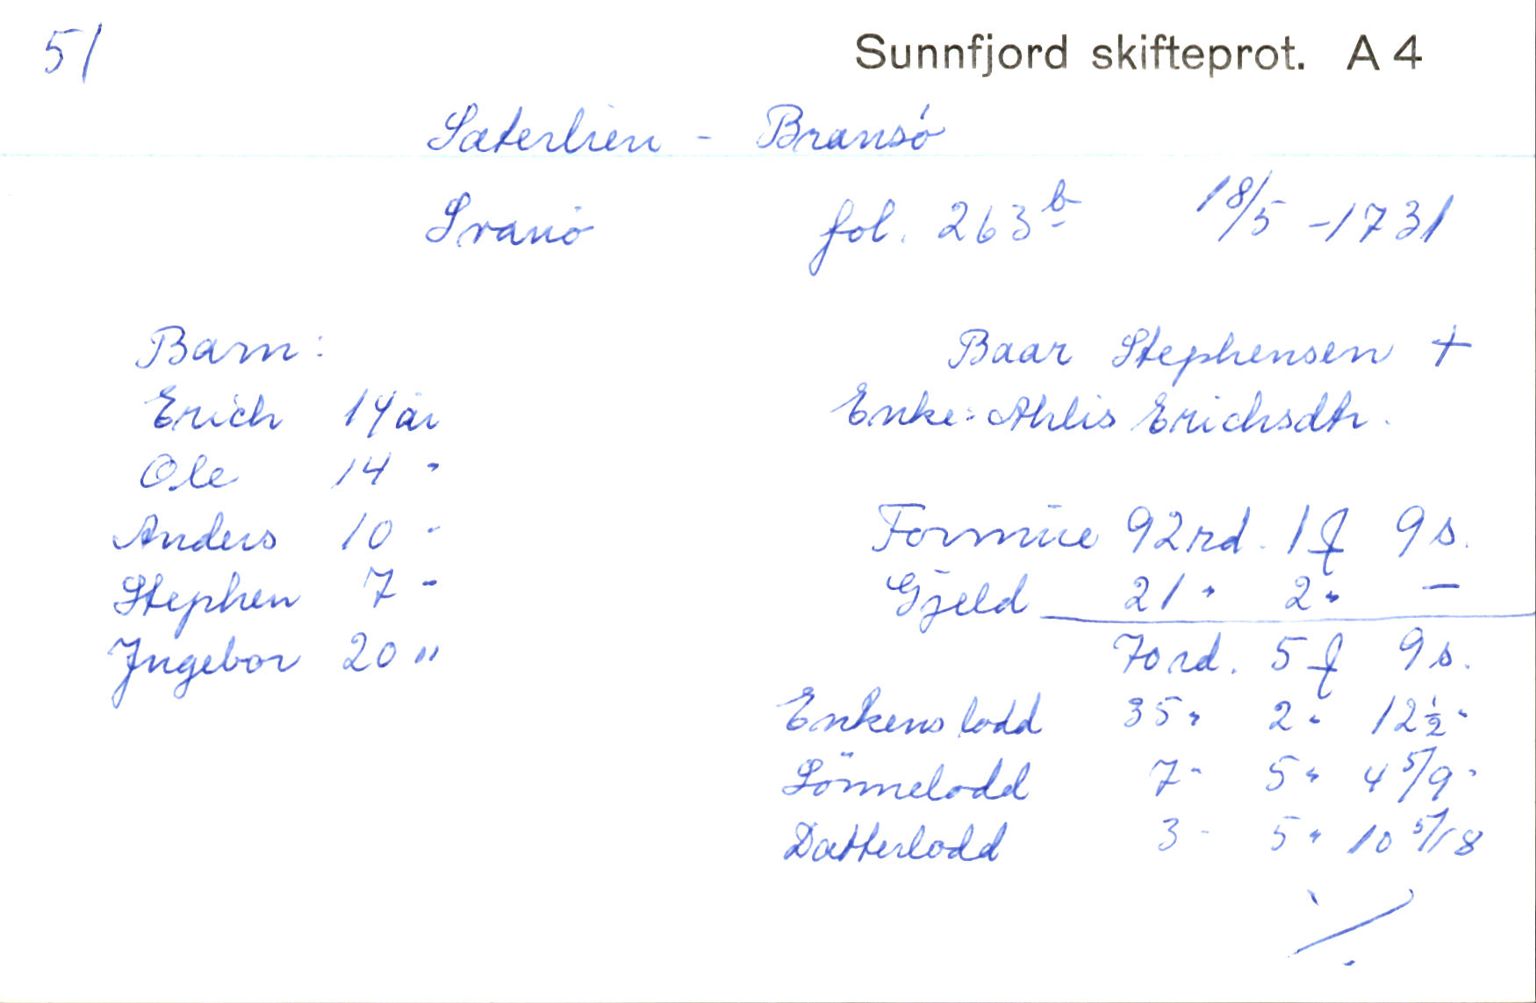 51
Sunnfjord skifteprot. A 4
Sæterlien - Bransø
Svanø fol. 263 b 18/5 -1731
Barn:
Erich 14 år
Ole 14 "
Anders 10 "
Stephen 7 "
Jngebor 20 "
Baar Stephensen +
Enke: Ahlis Erichsdtr.
Formue 92 rd. 1 ƒ 9 s.
Gjeld 21 " 2 " —
70 rd. 5 ƒ 9 s.
Enkens lodd 35 " 2 " 12 ½ "
Sönnelodd 7 " 5 " 4 5/9 "
Datterlodd 3 " 5 " 10 5/18
./.